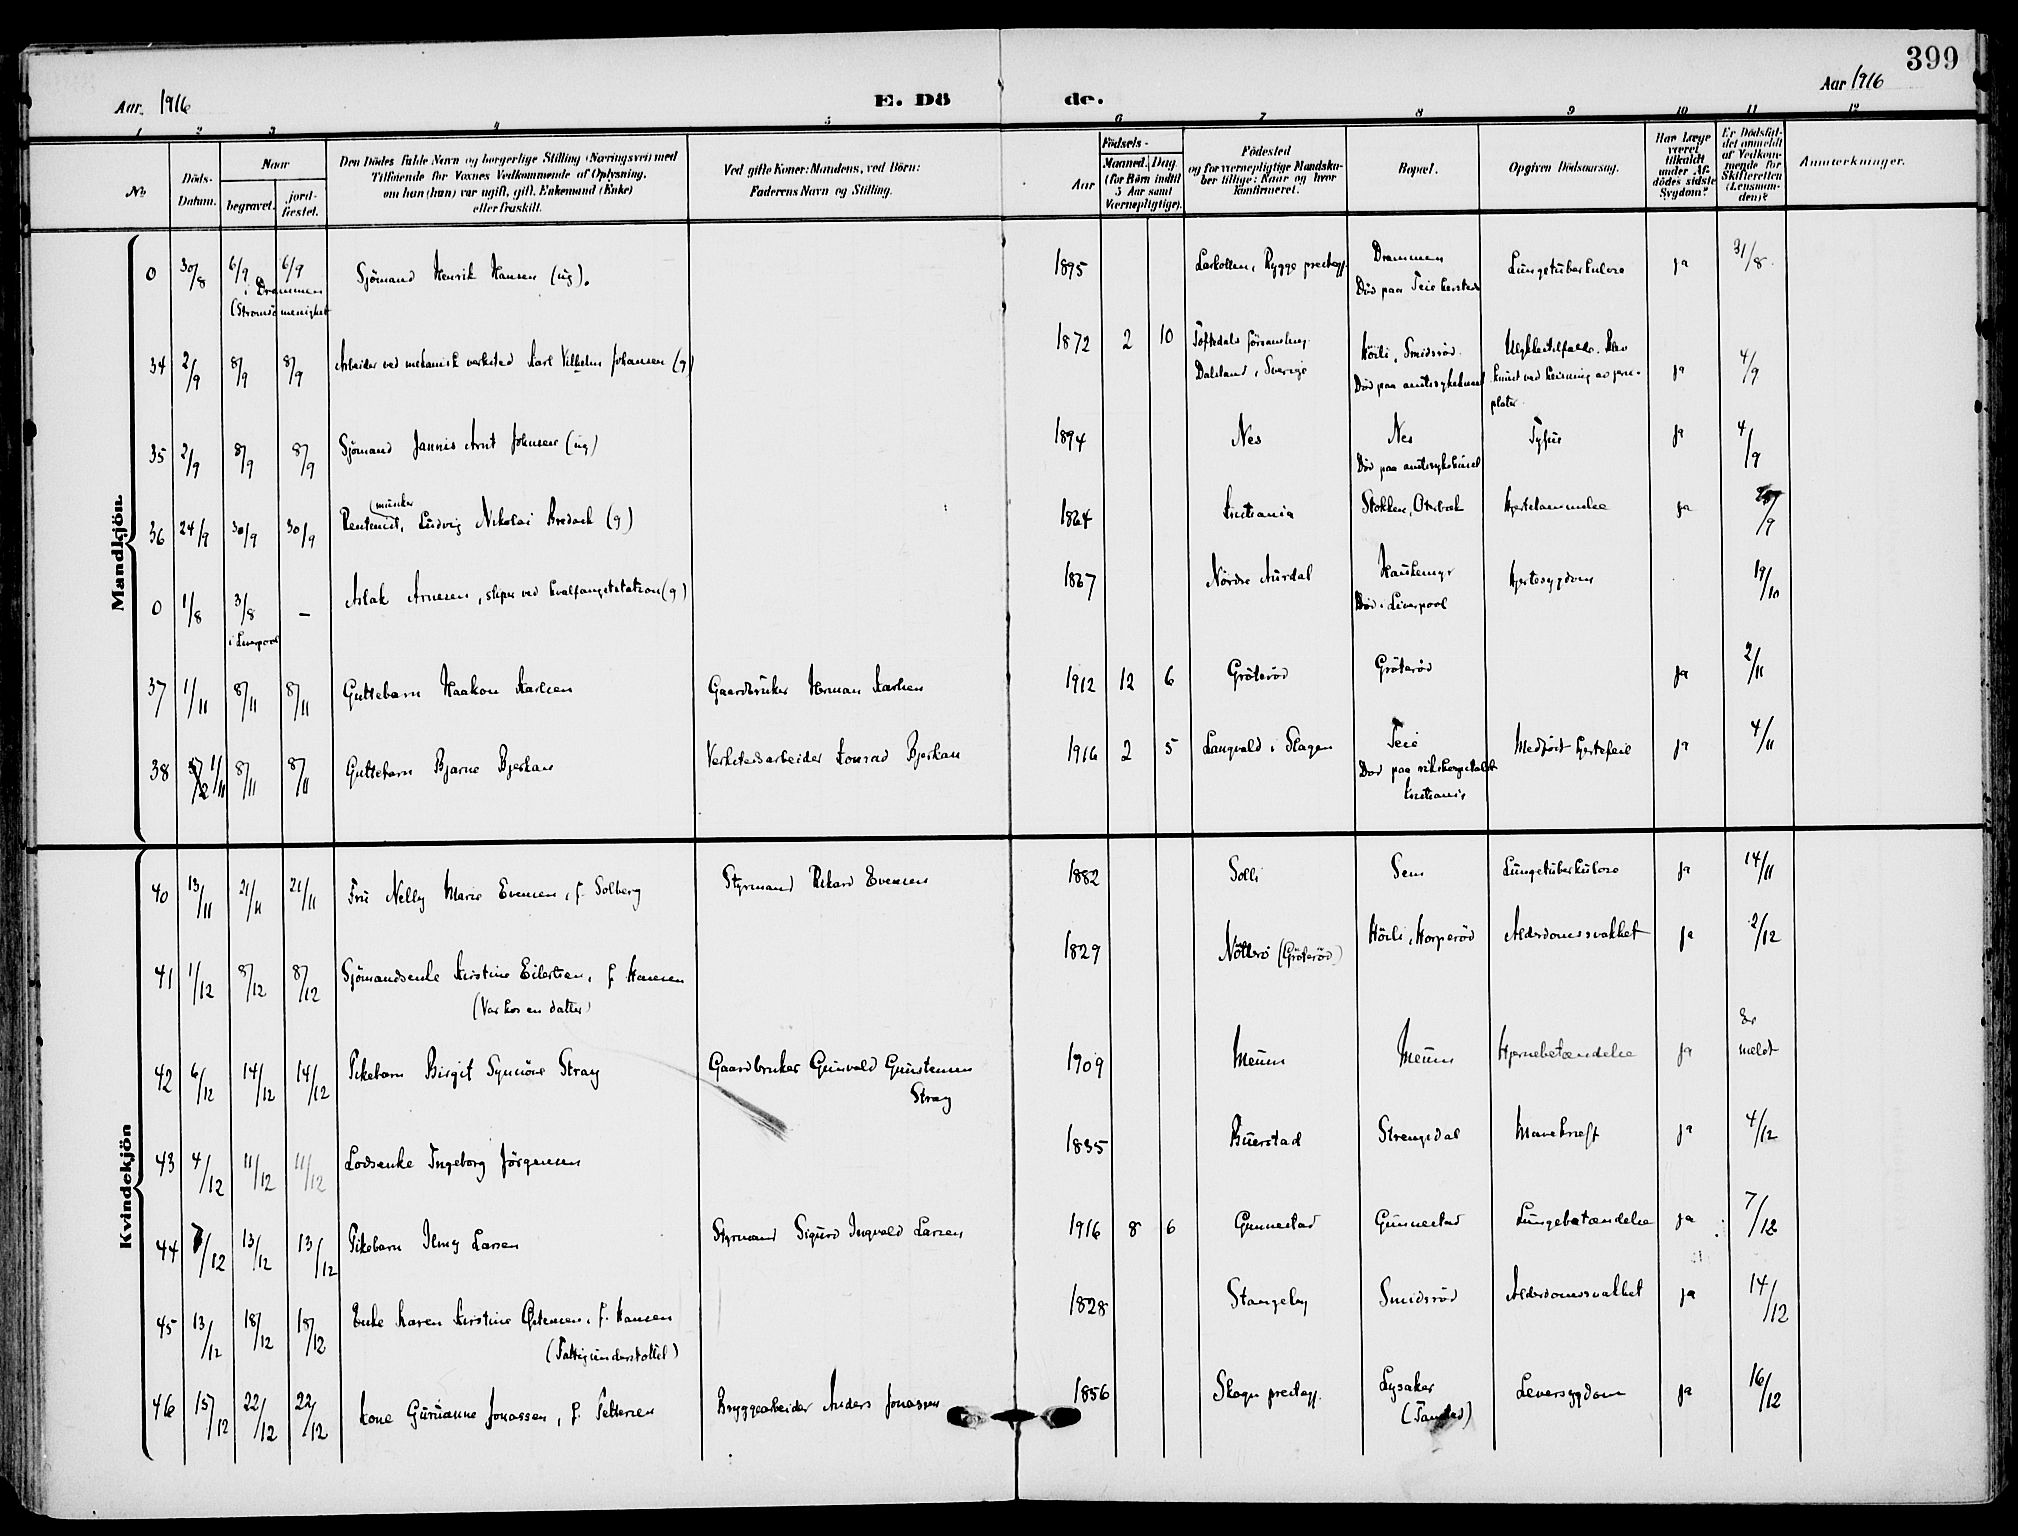 399
Aar. 1916
E. Dö
de.
Aar 1916
1 2 3 4 5 6 7 8 9 10 11 12
No
Döds-Datum.
Naar
begravet.
jord-fæstet.
Den Dödes fulde Navn og borgerlige Stilling (Næringsvei) med
Tilföiende for Voxnes Vedkommende af Oplysning,
om han (hun) var ugift, gift, Enkemand (Enke)
eller fraskilt.
Ved gifte Koner: Mandens, ved Börn:
Faderens Navn og Stilling.
Födsels-
Aar
Maaned. Dag.
(for Börn indtil
5 Aar samt
Værnepligtige).
Födested
og for værnepligtige Mandska-
ber tillige: Naar og hvor
konfirmeret.
Bopæl.
Opgiven Dödsaarsag.
Har Læge
været
tilkaldt
under Af-
dödes sidste
Sygdom?
Er Dödsfal-
det anmeldt
af Vedkom-
mende for
Skifteretten
(Lensman-
den)?
Anmærkninger.
Mandkjön
0 30/8 6/9 6/9 Sjömand Henrik Hansen (ug). 1895 Larkollen, Rygge prestegj. Drammen Lungetuberkulose ja 31/8
i Drammen
(Strömsö menighet
Död paa Teie
34 2/9 8/9 8/9 Arbeider ved mekanisk verksted Karl Vilhelm Johansen (g) 1872 2 10 Töftedals församling Höili, Smidsröd. Ulykkestilfælde. Blev
Dalsland, Sverige Död paa amtssykehuset knust ved heisning av jern- ja 4/9
plater.
35 2/9 8/9 8/9 Sjömand Jannis Arnt Johnsen (ug) 1894 Nes Nes Tyfus ja 4/9
Död paa amtssykehuset
36 24/9 30/9 30/9 Rentenist, (musiker Ludvig Nikolai Bredach (g) 1864 Kristiania Stokken, Oterbæk Hjertelammelse ja /9
0 1/8 3/8 – Aslak Arnesen, sliper ved hvalfangststation (g) 1867 Nordre Aurdal Haukemyr Hjertesygdom 19/10
i Liverpool Död i Liverpool
37 1/11 8/11 8/11 Guttebarn Haakon Karlsen Gaardbruker Herman Karlsen 1912 12 6 Gröteröd Gröteröd ja 2/11
38 1/11 8/11 8/11 Guttebarn Bjarne Bjerkan Verkstedsarbeider Konrad Bjerkan 1916 2 5 Langvald i Slagen Teie Medfödt hjertefeil ja 4/11
Död paa rikshospitalet
Kristiania
Kvindekjön
40 13/11 21/11 21/11 Fru Nelly Marie Evensen, f. Solberg Styrmand Rikard Evensen 1882 Solli Sem Lungetuberkulose ja 14/11
41 1/12 8/12 8/12 Sjömandsenke Kirstine Eilertsen, f Hansen 1829 Nötterö (Gröteröd) Höili, Horperöd Alderdomssvakhet ja 2/12
(Var hos en datter)
42 6/12 14/12 14/12 Pikebarn Birgit Synnöve Stray Gaardbruker Gunvald Gunstensen 1909 Meum Meum Hjernebetændelse ja Er
meldt
Stray
43 4/12 11/12 11/12 Lodsenke Ingeborg Jörgensen 1835 Buerstad Strengsdal Mavekreft ja 4/12
44 7/12 13/12 13/12 Pikebarn Jenny Larsen Styrmand Sigurd Ingvald Larsen 1916 8 6 Gunnestad Gunnestad Lungebetændelse ja 7/12
45 13/12 18/12 18/12 Enke Karen Kirstine f. Hansen 1828 Stangeby Smidsröd Alderdomssvakhet ja 14/12
(Fattigunderstöttet)
46 15/12 22/12 22/12 Kone Guruanne Jonassen, f. Pettersen Bryggearbeider Anders Jonassen 1856 Skogn prestegj. Lysaker Leversygdom ja 16/12